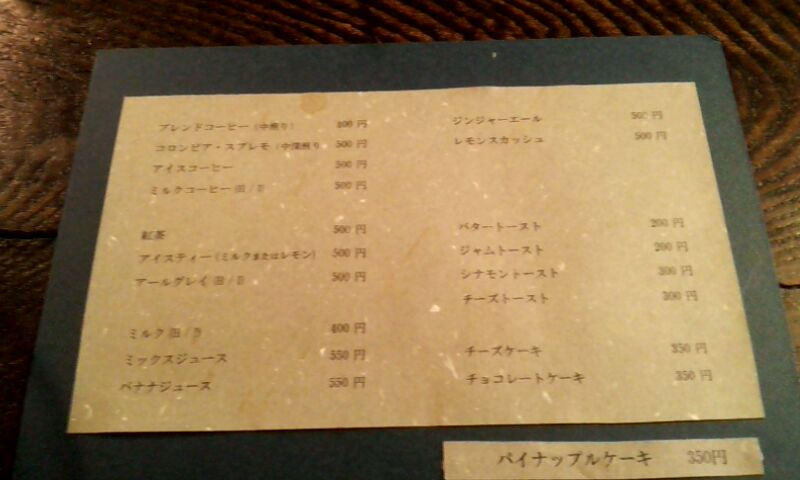 ブレンドコーヒー（中煎り） 400 円
コロンビア・スプレモ（中深煎り 500 円
アイスコーヒー 500 円
ミルクコーヒー 500 円
紅茶 500 円
アイスティー（ミルクまたはレモン） 500 円
アールグレイ 500 円
ミルク 400 円
ミックスジュース 550 円
バナナジュース 550 円
ジンジャーエール 500 円
レモンスカッシュ 500 円
バタートースト 200 円
ジャムトースト 200 円
シナモントースト 300 円
チーズトースト 300 円
チーズケーキ 350 円
チョコレートケーキ 350 円
パイナップルケーキ 350円